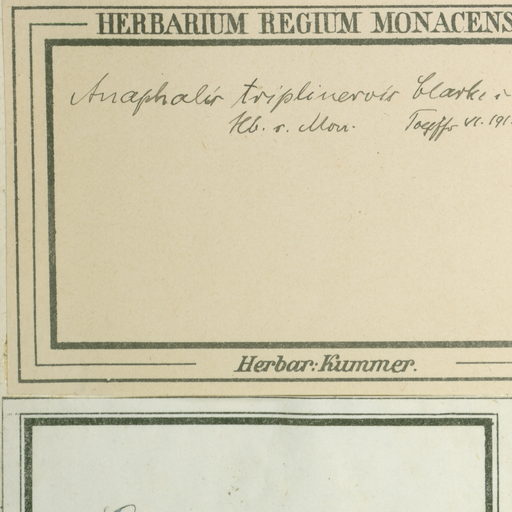 HERBARIUM REGIUM MONACENS
Anaphalis triplinervis Clarke
Hb. r. Mon. Toepffer VI. 191
Herbar: Kummer.